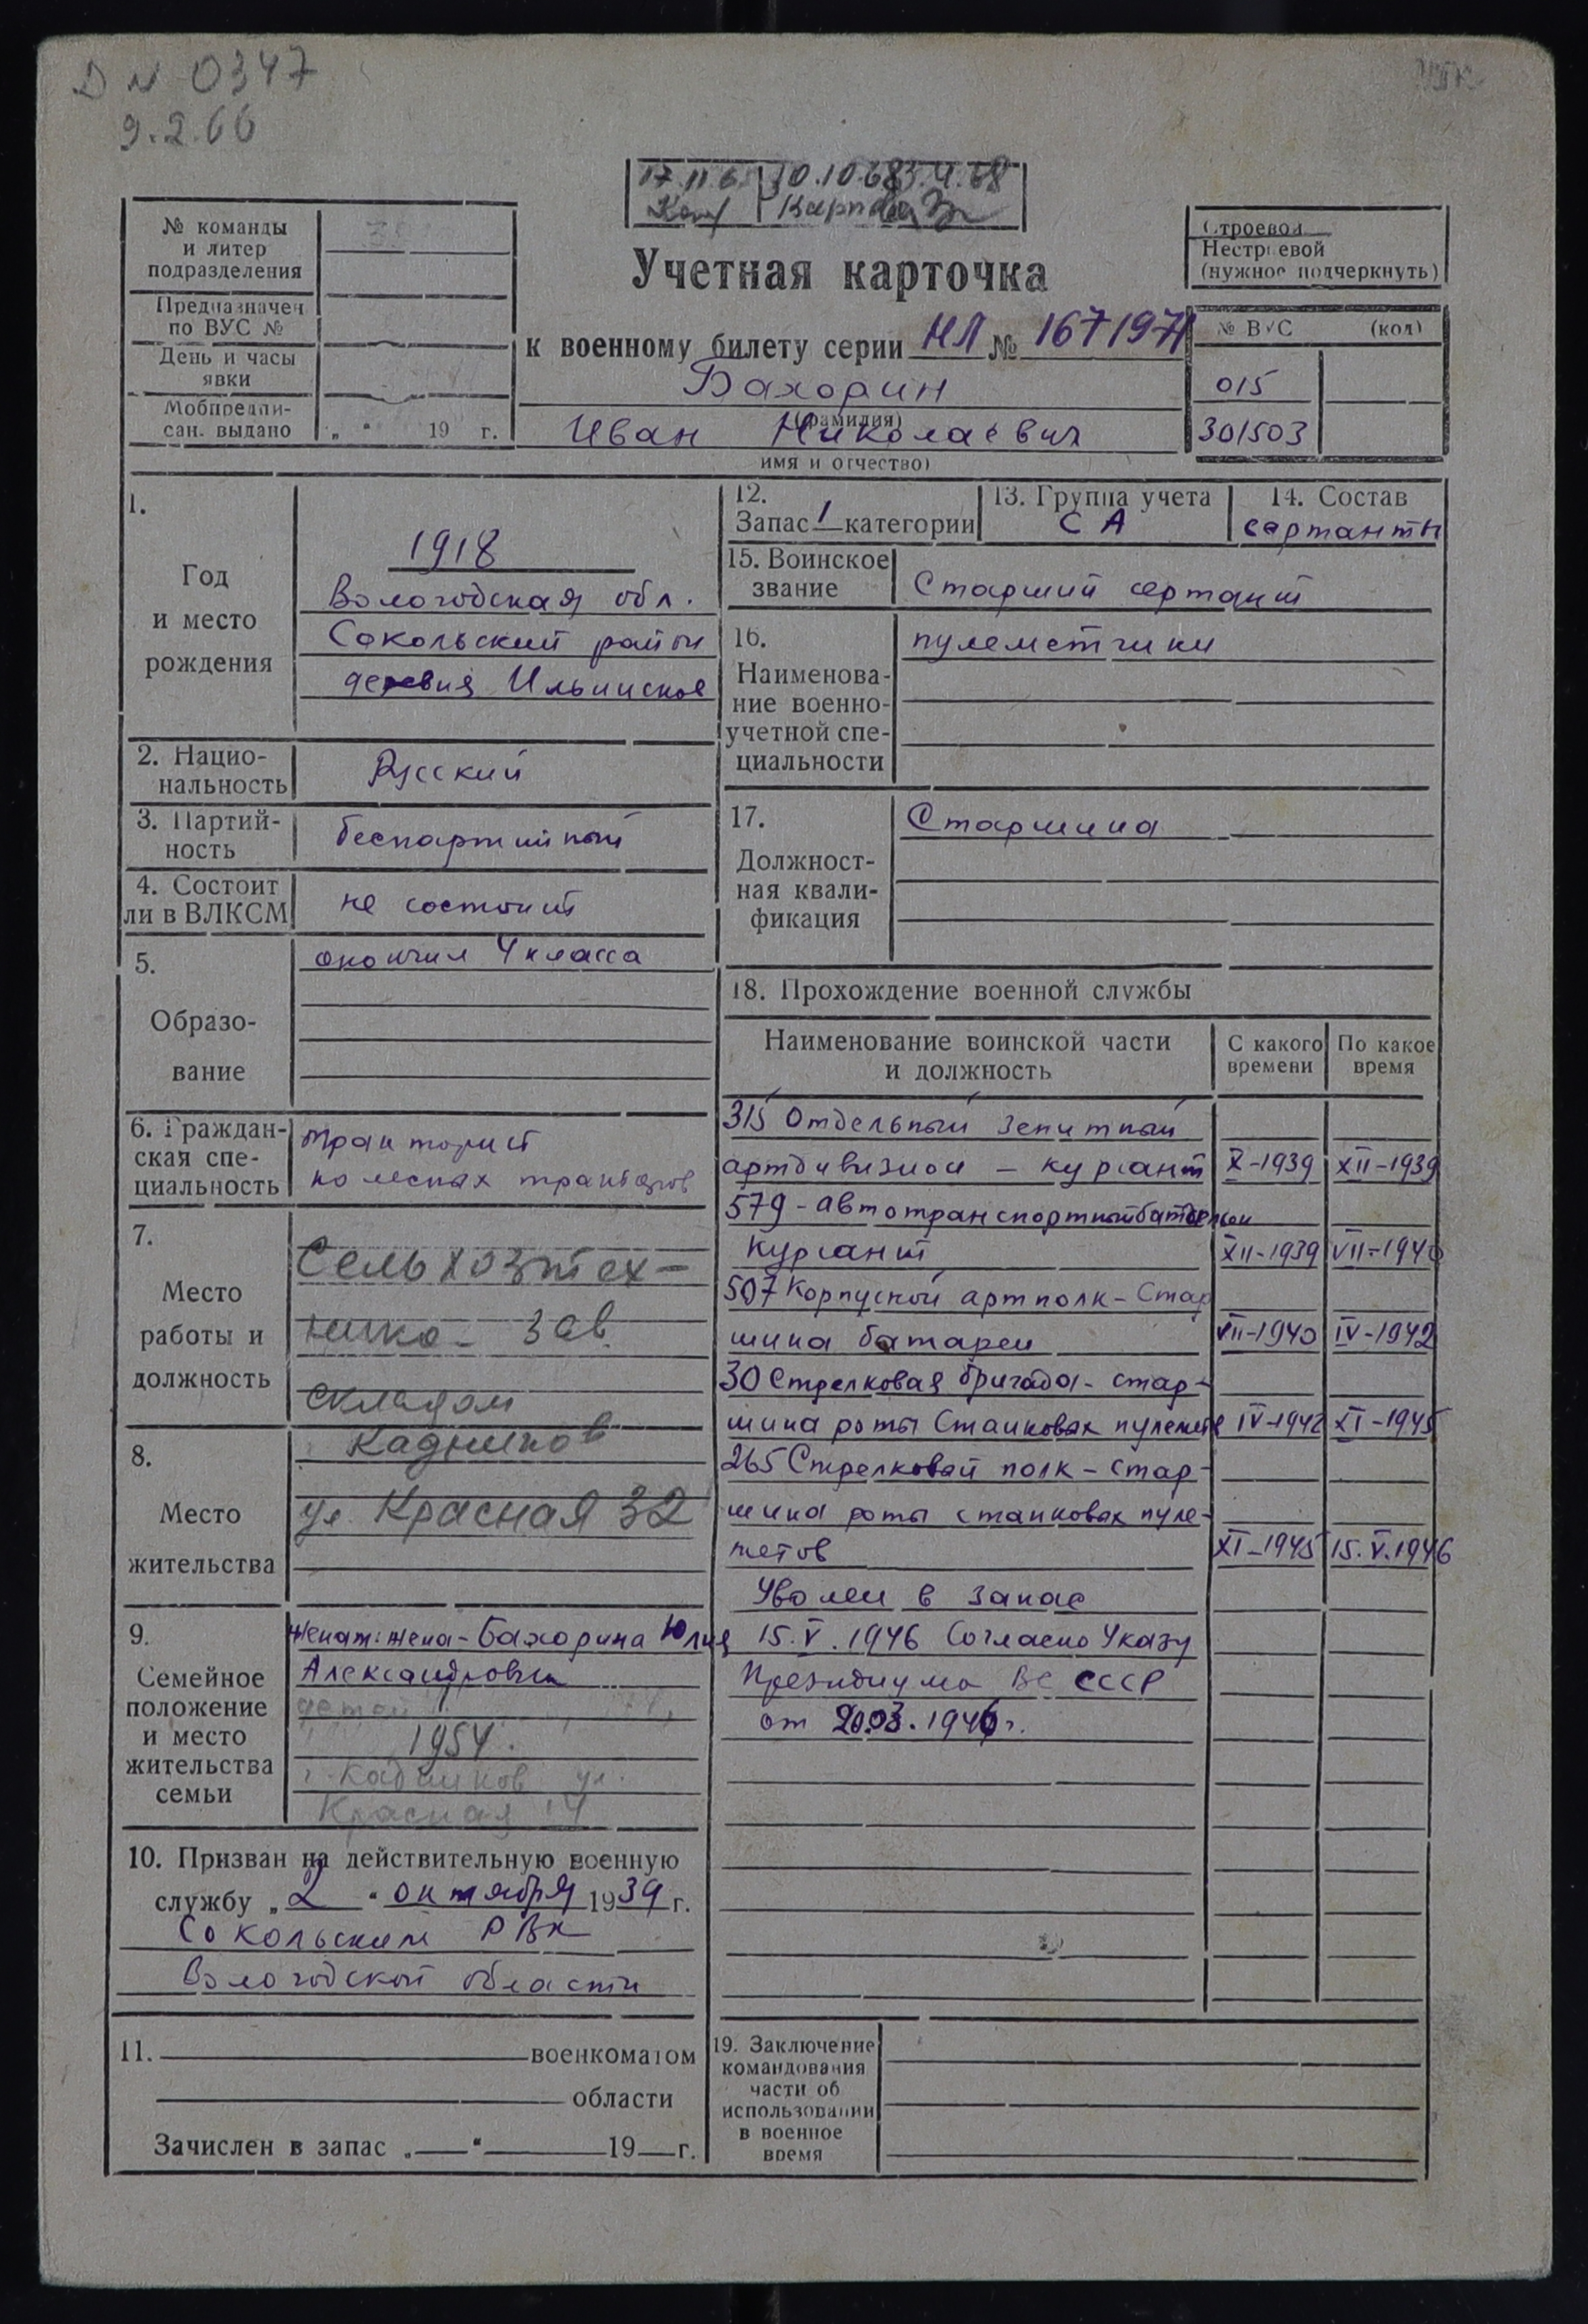 D N 0347
9.2.66
10.10.68
№ команды
и литер
подразделения
Предназначен
по ВУС №
День и часы
явки
Мобпредпи-
сан. выдано „ “ 19 г.
Строевой
Нестроевой
(нужное подчеркнуть)
Учетная карточка
к военному билету серии НЛ № 1671971
Бахорин
(фамилия)
Иван Николаевич
имя и отчество)
№ ВУС (код)
015
301503
1.
Год
и место
рождения
1918
Вологодская обл.
Сокольский район
деревня Ильинское
2. Нацио-
нальность
Русский
3. Партий-
ность
беспартийный
4. Состоит
ли в ВЛКСМ
не состоит
5.
Образо-
вание
окончил 4 класса
6. Граждан-
ская спе-
циальность
тракторист
колесных тракторов
7.
Место
работы и
должность
Сельхозтех-
ника - зав.
складом
8.
Место
жительства
г. Кадников
ул. Красная 32
9.
Семейное
положение
и место
жительства
семьи
Женат: жена - Бахорина Юлия
Александровна
детей
1954.
г. Кадников ул.
Красная 14
10. Призван на действительную военную
службу „ 2 “ октября 1939 г.
Сокольским РВК
Вологодской области
11. военкоматом
области
Зачислен в запас „ “ 19 г.
12.
Запас 1 категории
13. Группа учета
СА
14. Состав
сержанты
15. Воинское
звание
Старший сержант
16.
Наименова-
ние военно-
учетной спе-
циальности
пулеметчики
17.
Должност-
ная квали-
фикация
Старшина
18. Прохождение военной службы
Наименование воинской части
и должность
С какого
времени
По какое
время
315 Отдельный зенитный
артдивизион - курсант X-1939 XII-1939
579 - автотранспортный батальон
курсант XII-1939 VII-1940
507 Корпусной артполк - Стар
шина батареи VII-1940 IV-1942
30 Стрелковая бригада - стар-
шина роты Станковых пулеметов IV-1942 XI-1945
265 Стрелковый полк - стар-
шина роты станковых пуле-
метов XI-1945 15.V.1946
Уволен в запас
15.V.1946 Согласно Указу
Президиума ВС СССР
от 20.03.1946 г.
19. Заключение
командования
части об
использовании
в военное
время